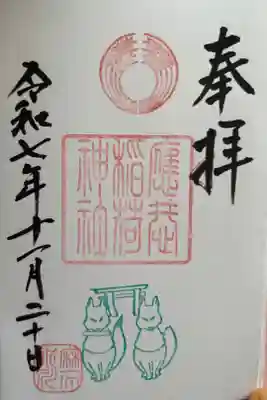 奉拝
稲荷
神社
令和七年十一月二十日